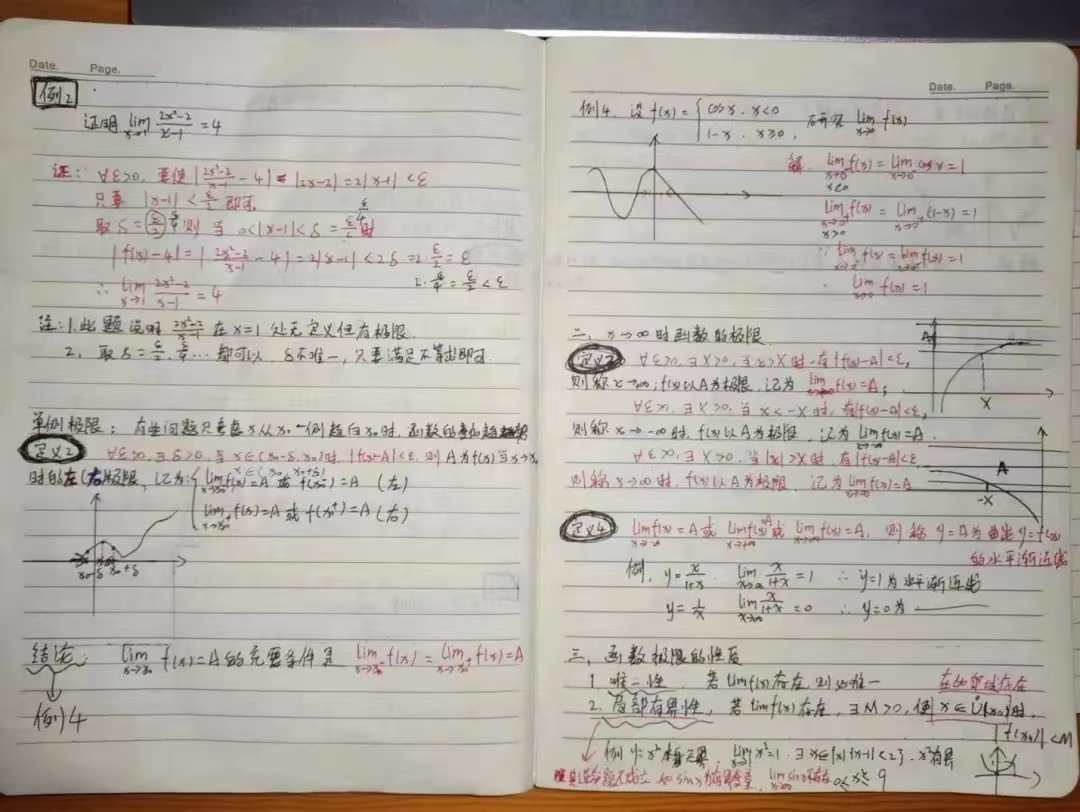 Date. Page.
例2
证明 lim x→1 (2x²-2)/(x-1) = 4
证: ∀ε>0, 要使 |(2x²-2)/(x-1) - 4| = |2x-2| = 2|x-1| < ε
只要 |x-1| < ε/2 即可
取 δ = ε/2 ε/4 则当 0<|x-1|<δ = ε/2 时 ε/4
|f(x)-4| = |(2x²-2)/(x-1) - 4| = 2|x-1| < 2δ = 2·ε/2 = ε
2·ε/4 = ε/2 < ε
∴ lim x→1 (2x²-2)/(x-1) = 4
注: 1. 此题说明 (2x²-2)/(x-1) 在 x=1 处无定义但有极限.
2. 取 δ = ε/2, ε/4 … 都可以, δ不唯一, 只要满足不等式即可.
单侧极限: 在些问题只考虑 x 从 x₀ 一侧趋向 x₀ 时, 函数的变化趋
定义2 ∀ε>0, ∃δ>0, 当 x∈(x₀-δ, x₀) 时 |f(x)-A|<ε, 则 A 为 f(x) 当 x→x₀
x∈(x₀, x₀+δ)
时的左(右)极限, 记为: lim x→x₀⁻ f(x)=A 或 f(x₀⁻)=A (左)
lim x→x₀⁺ f(x)=A 或 f(x₀⁺)=A (右)
x₀-δ x₀ x₀+δ
结论: lim x→x₀ f(x)=A 的充要条件是 lim x→x₀⁻ f(x) = lim x→x₀⁺ f(x)=A
例4
Date. Page.
例4. 设 f(x) = { cos x, x<0
1-x, x≥0, 研究 lim x→0 f(x)
解. lim x→0⁻ f(x) = lim x→0⁻ cos x = 1
x<0
lim x→0⁺ f(x) = lim x→0⁺ (1-x) = 1
x>0
∵ lim x→0⁻ f(x) = lim x→0⁺ f(x) = 1
∴ lim x→0 f(x) = 1
二、x→∞ 时函数的极限
定义3 ∀ε>0, ∃X>0, 当 x>X 时, 有 |f(x)-A|<ε,
则称 x→+∞, f(x) 以 A 为极限. 记为 lim x→+∞ f(x)=A;
∀ε>0, ∃X>0, 当 x<-X 时, 有|f(x)-A|<ε,
则称 x→-∞ 时, f(x) 以 A 为极限, 记为 lim x→-∞ f(x)=A.
∀ε>0, ∃X>0, 当 |x|>X 时, 有|f(x)-A|<ε
则称 x→∞ 时, f(x) 以 A 为极限, 记为 lim x→∞ f(x)=A
A
X
A
-X
定义4 lim x→-∞ f(x)=A 或 lim x→+∞ f(x)=A 或 lim x→∞ f(x)=A, 则称 y=A 为曲线 y=f(x)
的水平渐近线
例, y = x/(1+x). lim x→∞ x/(1+x) = 1 ∴ y=1 为水平渐近线
y = 1/x lim x→∞ x/(1+x) = 0 ∴ y=0 为 ——
三、函数极限的性质
1. 唯一性 若 lim f(x) 存在, 则必唯一
2. 局部有界性, 若 lim f(x) 存在, ∃M>0, 使 x∈Ů(x₀) 时,
|f(x)|<M
例 y=x² 无界, lim x→1 x²=1. ∃x∈{x||x-1|<2}. x² 有界
0≤x²≤9
不成立 如 sin x 为有界, lim x→∞ sin x 不存在